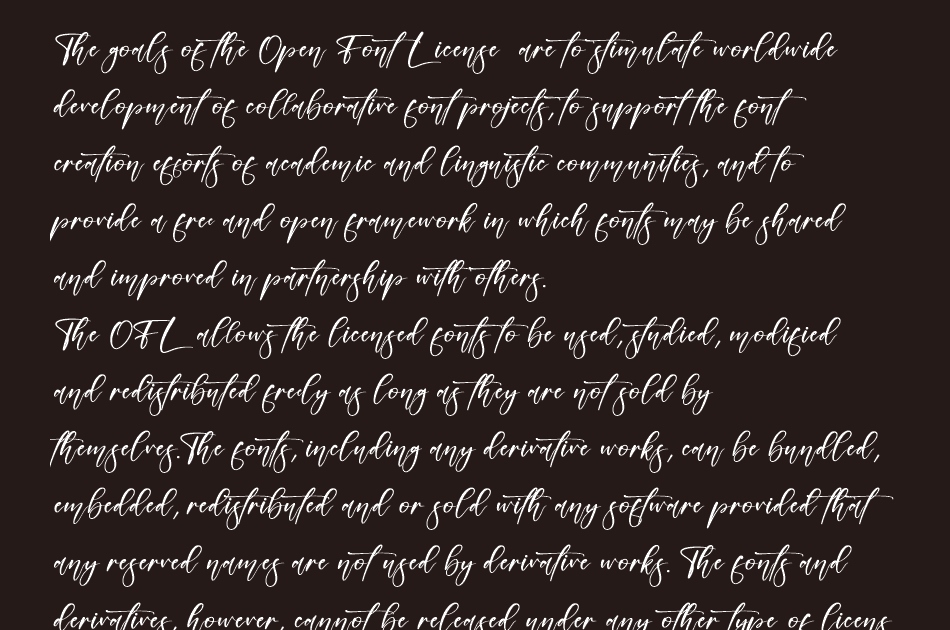 The goals of the Open Font License are to stimulate worldwide
development of collaborative font projects, to support the font
creation efforts of academic and linguistic communities, and to
provide a free and open framework in which fonts may be shared
and improved in partnership with others.
The OFL allows the licensed fonts to be used, studied, modified
and redistributed freely as long as they are not sold by
themselves. The fonts, including any derivative works, can be bundled,
embedded, redistributed and or sold with any software provided that
any reserved names are not used by derivative works. The fonts and
derivatives, however, cannot be released under any other type of licens